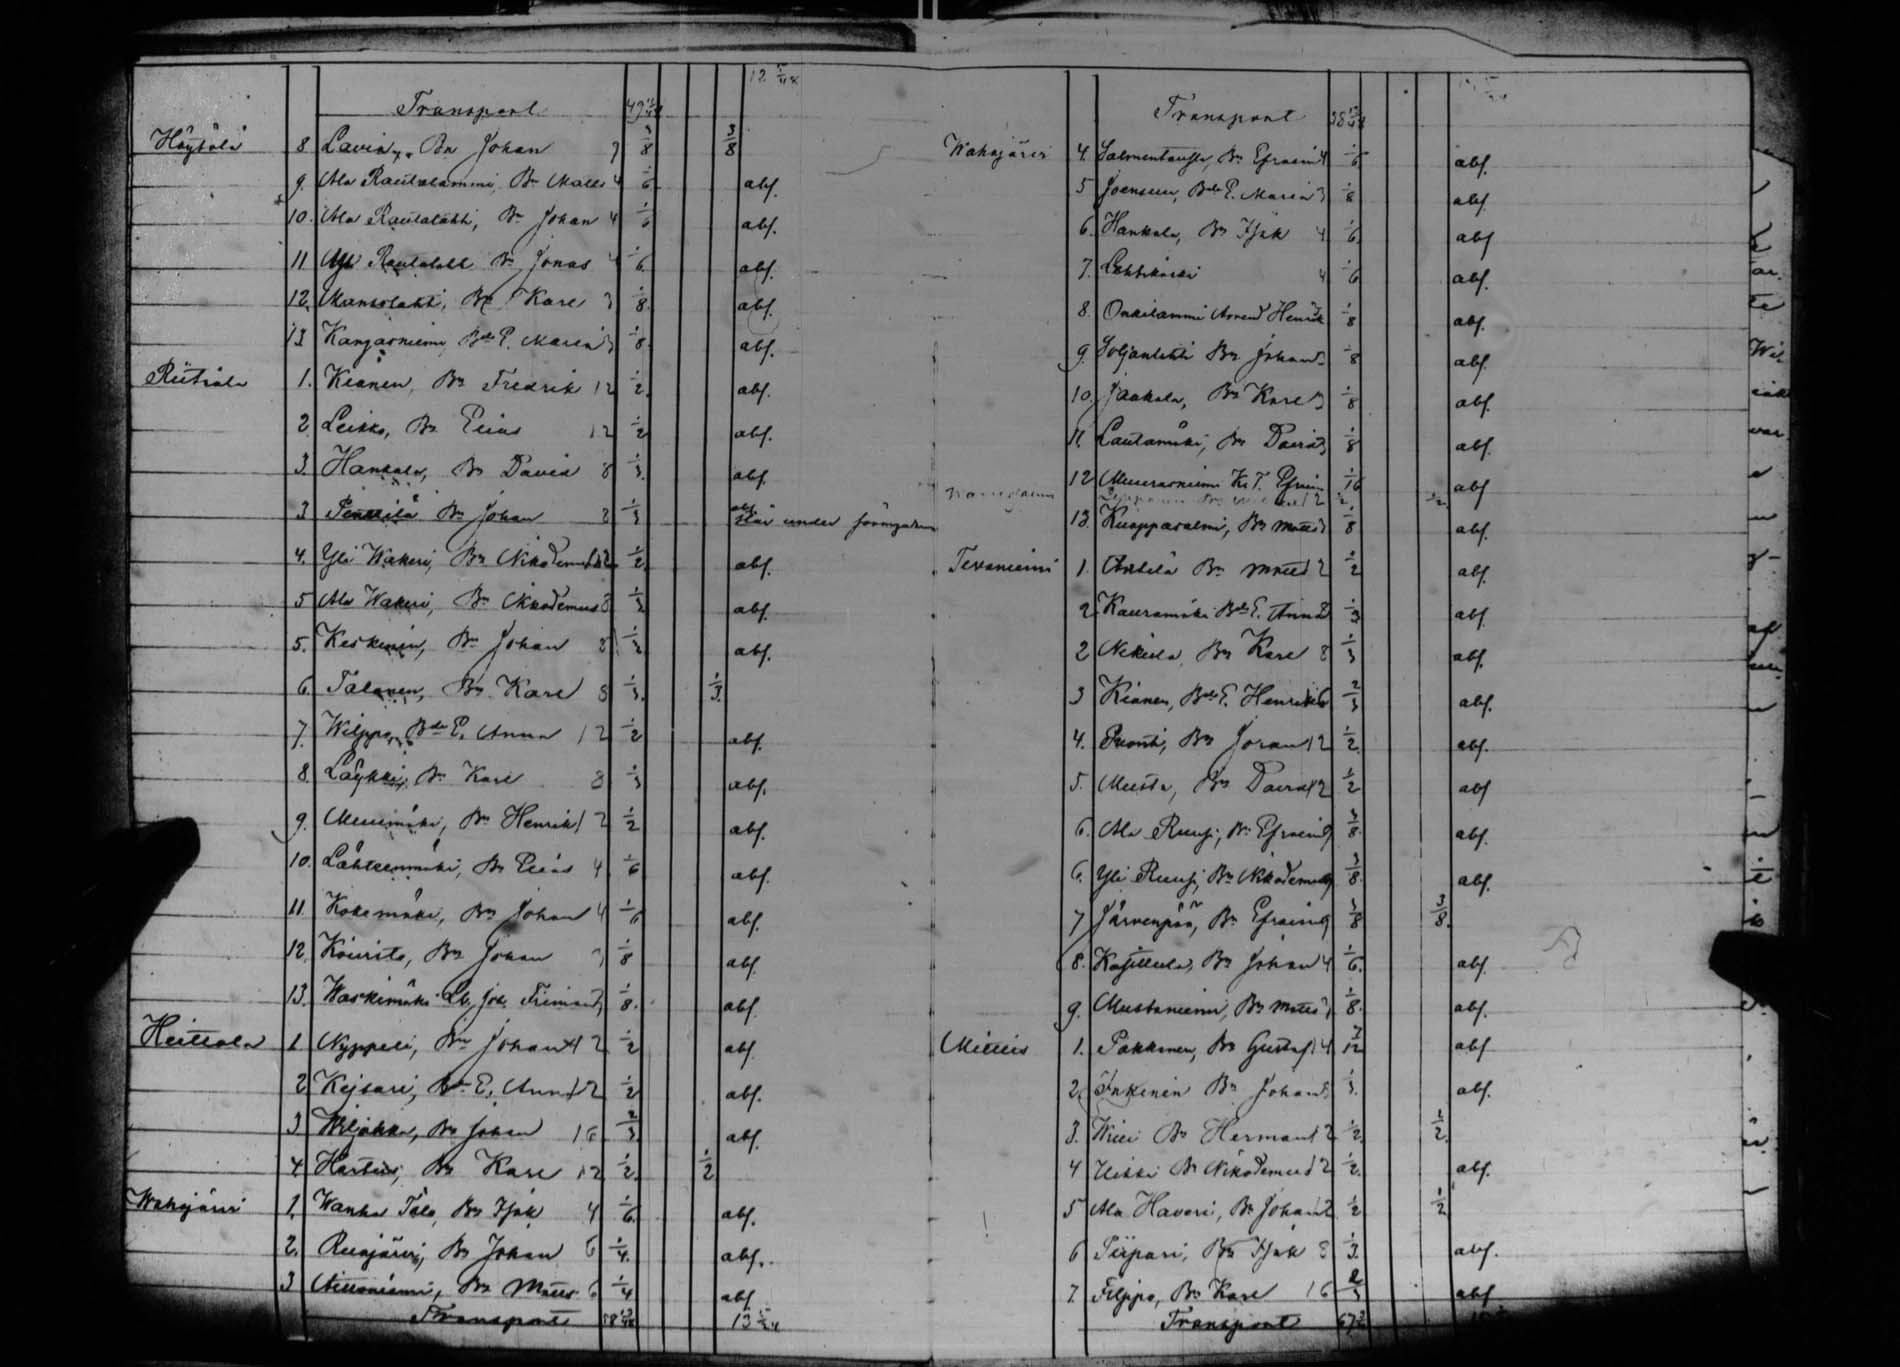 Transport 49
Höytölä 8 Lavia, Bn Johan 9 3/8 3/8
9. Ala Rautalammi, Bn Matts 4 1/6 abs.
10. Ala Rautalahti, Bn Johan 4 1/6 abs.
11 Yli Rautalahti Bn Jonas 4 1/6 abs.
12. Mansolahti, Bn Karl 3 1/8 abs.
13 Kangasniemi Bde E. Maria 3 1/8 abs.
Riitiala 1. Kianen, Bn Fredrik 12 1/2 abs.
2. Leikko, Bn Elias 12 1/2 abs.
3. Hankala, Bn David 8 1/3 abs.
3 Penttilä Bn Johan 8 1/3 abs. står under förmyndare
4. Yli Wakeri, Bn Nikodemus 12 1/2 abs.
5 Ala Wakeri, Bn Nikodemus 8 1/3 abs.
5. Keskinen, Bn Johan 8 1/3 abs.
6. Talonen, Bn Karl 8 1/3 1/3
7. Wilppo, Bde E. Anna 12 1/2 abs.
8. Läykki, Bn Karl 8 1/3 abs.
9. Muumäki, Bn Henrik 12 1/2 abs.
10. Lähteenmäki, Bn Elias 4 1/6 abs.
11 Kokemäki, Bn Johan 4 1/6 abs.
12. Kouristo, Bn Johan 3 1/8 abs.
13. Waskimäki Lb. Joh. Friman 3 1/8 abs.
Heittola 1 Nyppeli, Bn Johan 12 1/2 abs.
2 Kejsari, Bn E. Anna 12 1/2 abs.
3 Wiljakka, Bn Johan 16 2/3 abs.
4. Hartus, Bn Karl 12 1/2 1/2
Wahojärvi 1. Wanha Talo, Bn Isak 4 1/6 abs.
2. Ruojärvi, Bn Johan 6 1/4 abs.
3 Aittoniemi, Bn Matts 6 1/4 abs.
Transport 58 13
Transport 58
Wahojärvi 4. Salmentausta, Bn Efraim 4 1/6 abs.
5 Joensuu, Bde E. Maria 3 1/8 abs.
6. Hankala, Bn Isak 4 1/6 abs
7. Lehtikoski 4 1/6 abs.
8. Onkilammi Arrend Henrik 3 1/8 abs.
9. Soljanlahti Bn Johan 3 1/8 abs.
10. Jaakola, Bn Karl 3 1/8 abs.
11. Lautamäki, Bn David 3 1/8 abs.
12 Muuraoniemi K. T. Efraim 1/16 abs
13. Kuoppasalmi, Bn Matts 3 1/8 abs.
Tevaniemi 1. Anttila Bn Matts 12 1/2 abs.
2. Kauramäki Bde E. Anna 8 1/3 abs.
2 Nikula, Bn Karl 8 1/3 abs.
3 Kianen, Bde E. Henrika 16 2/3 abs.
4. Puonti, Bn Johan 12 1/2 abs.
5. Musta, Bn David 12 1/2 abs
6. Ala Ruusi, Bn Efraim 9 3/8 abs.
6. Yli Ruusi, Bn Nikodemus 9 3/8 abs.
7 Järvenpää, Bn Efraim 9 3/8 3/8
8. Bn Johan 4 1/6 abs.
9. Mustaniemi, Bn Matts 3 1/8 abs.
Miettis 1. Pakkanen, Bn Gustaf 14 7/12 abs
2. Inkinen Bn Johan 8 1/3 abs.
3. Bn Herman 12 1/2 1/2
4 Uikki Bn Nikodemus 12 1/2 abs.
5 Ala Haveri, Bn Johan 12 1/2 1/2
6 Piipari, Bn Isak 8 1/3 abs.
7. Filppo, Bn Karl 16 2/3 abs
Transport 67